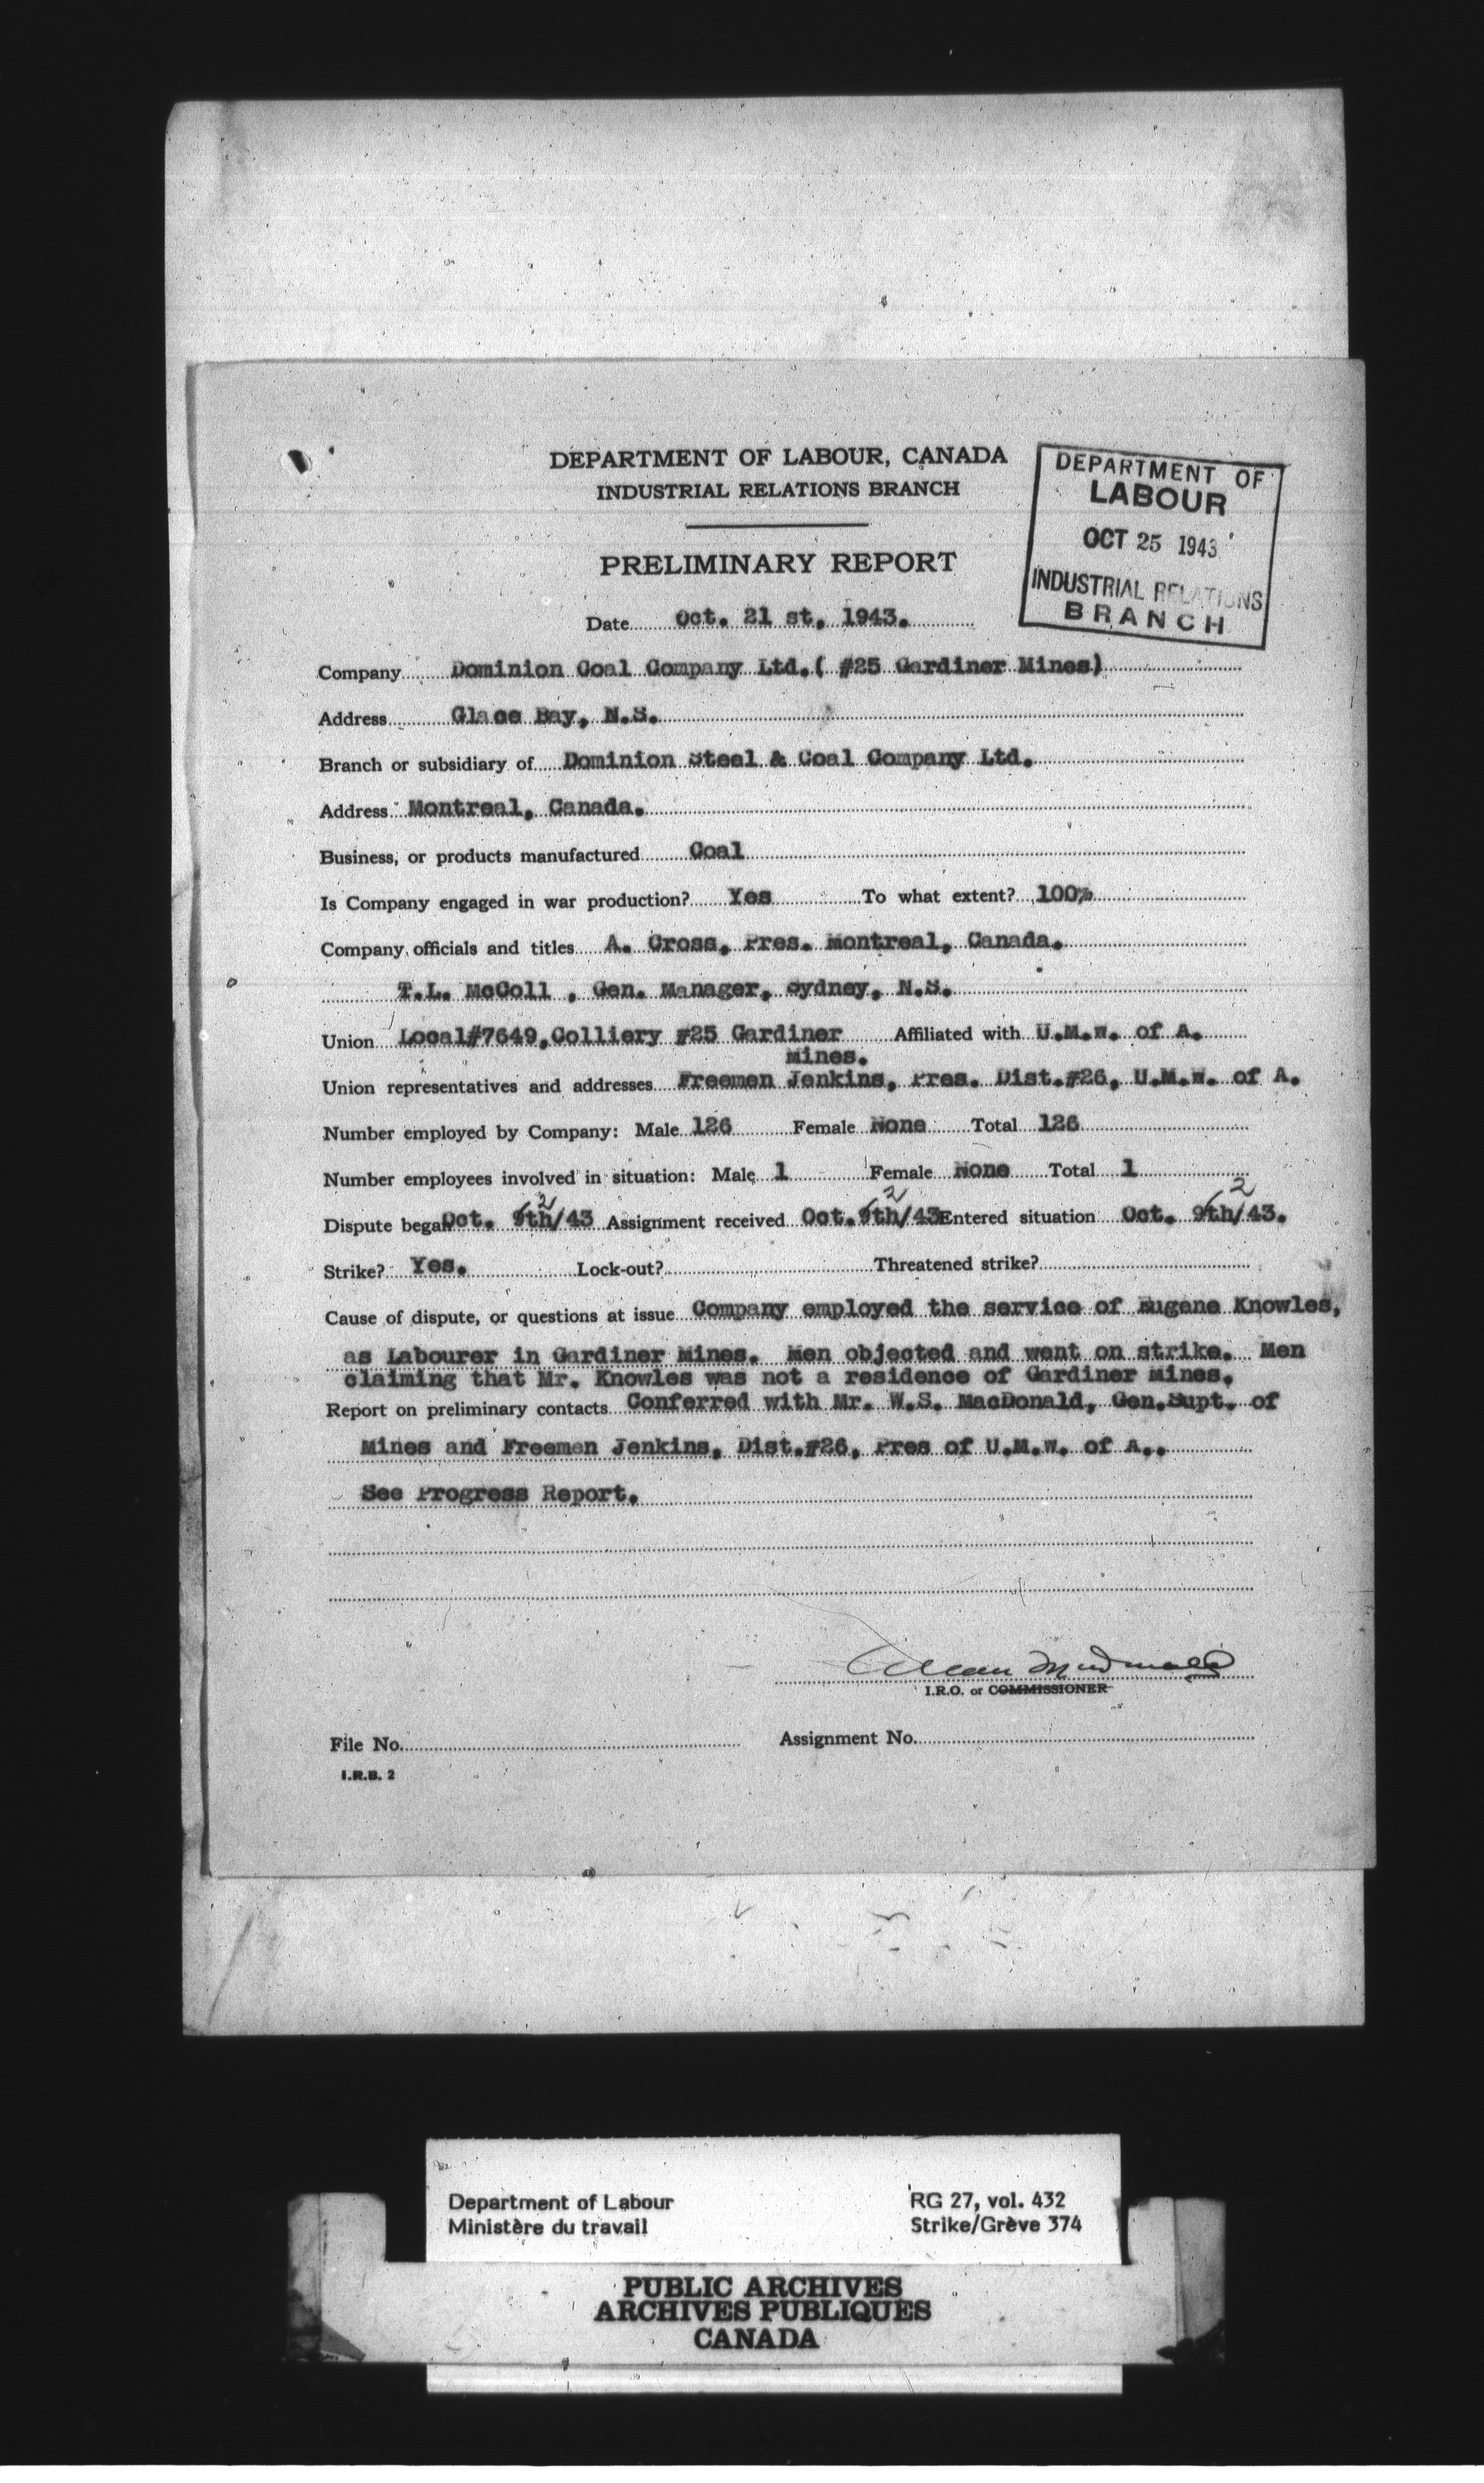 DEPARTMENT OF LABOUR, CANADA
INDUSTRIAL RELATIONS BRANCH
DEPARTMENT OF
LABOUR
OCT 25 1943
INDUSTRIAL RELATIONS
BRANCH
PRELIMINARY REPORT
Date Oct. 21 st. 1943.
Company Dominion Coal Company Ltd.( #25 Gardiner Mines)
Address Glace Bay, N.S.
Branch or subsidiary of Dominion Steel & Coal Company Ltd.
Address Montreal, Canada.
Business, or products manufactured Coal
Is Company engaged in war production? Yes To what extent? 100%
Company officials and titles A. Cross, Pres. Montreal, Canada.
T.L. McColl , Gen. Manager, Sydney, N.S.
Union Local#7649,Colliery #25 Gardiner Affiliated with U.M.W. of A.
Mines.
Union representatives and addresses Freemen Jenkins, Pres. Dist.#26, U.M.W. of A.
Number employed by Company: Male 126 Female None Total 126
Number employees involved in situation: Male 1 Female None Total 1
2 2 2
Dispute began Oct. 9th/43 Assignment received Oct.9th/43 Entered situation Oct. 9th/43.
Strike? Yes. Lock-out? Threatened strike?
Cause of dispute, or questions at issue Company employed the service of Eugene Knowles,
as Labourer in Gardiner Mines. Men objected and went on strike. Men
claiming that Mr. Knowles was not a residence of Gardiner Mines.
Report on preliminary contacts Conferred with Mr. W.S. MacDonald, Gen.Supt. of
Mines and Freemen Jenkins, Dist.#26, Pres of U.M.W. of A..
See Progress Report.
I.R.O. or COMMISSIONER
File No. Assignment No.
I.R.B. 2
Department of Labour RG 27, vol. 432
Ministère du travail Strike/Grève 374
PUBLIC ARCHIVES
ARCHIVES PUBLIQUES
CANADA